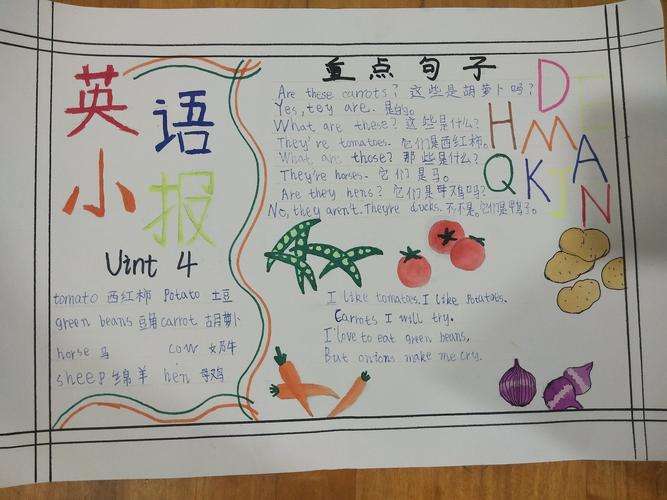 英语
小报
Uint 4
tomato 西红柿 Potato 土豆
green beans 豆角 carrot 胡萝卜
horse 马 cow 奶牛
sheep 绵羊 hen 母鸡
重点句子
Are these carrots? 这些是胡萝卜吗?
Yes, tey are. 是的。
What are these? 这些是什么?
They're tomatoes. 它们是西红柿。
What are those? 那些是什么?
They're horses. 它们是马。
Are they hens? 它们是母鸡吗?
No, they aren't. Theyre ducks. 不,不是。它们是鸭子。
D
H M A
Q K J N
I like tomatos. I like Potatos.
Carrots I will try.
I'love to eat green beans,
But onions make me cry.